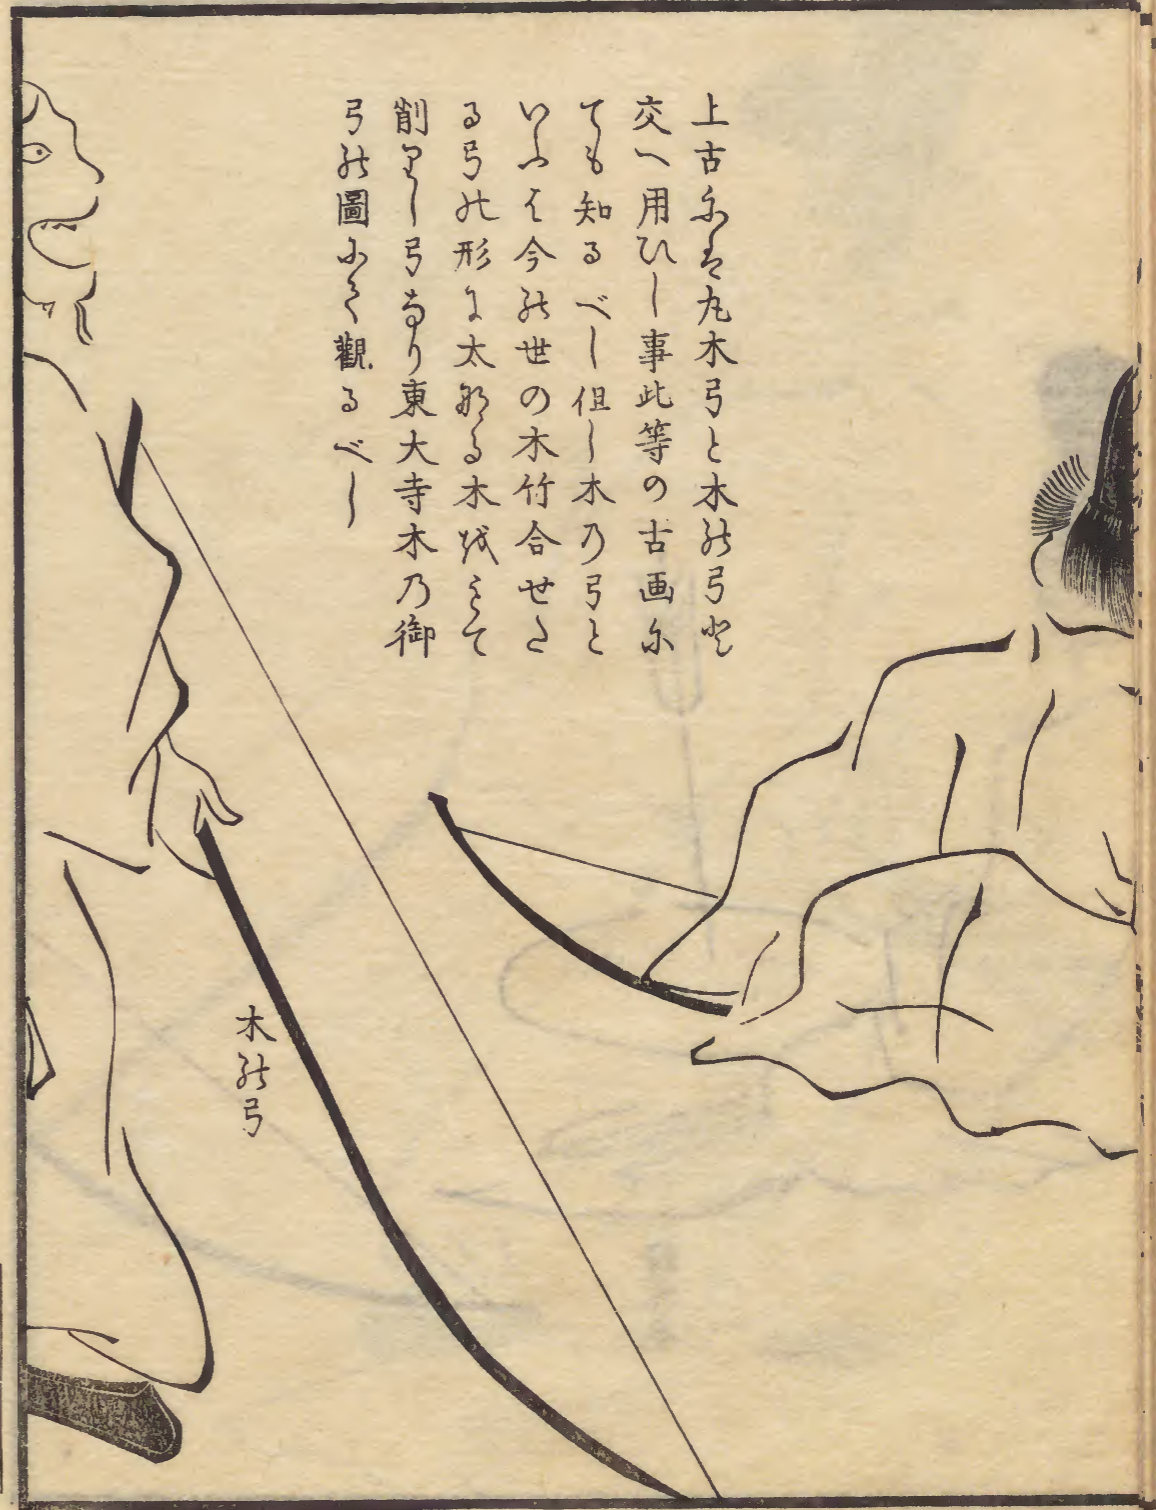 上古尓は丸木弓と木能弓登
交へ用ひし事此等の古画尓
ても知るべし但し木乃弓と
いふは今能世の木竹合せた
る弓の形に太那る木越もて
削りし弓なり東大寺木乃御
弓能圖にて觀るべし
木能弓